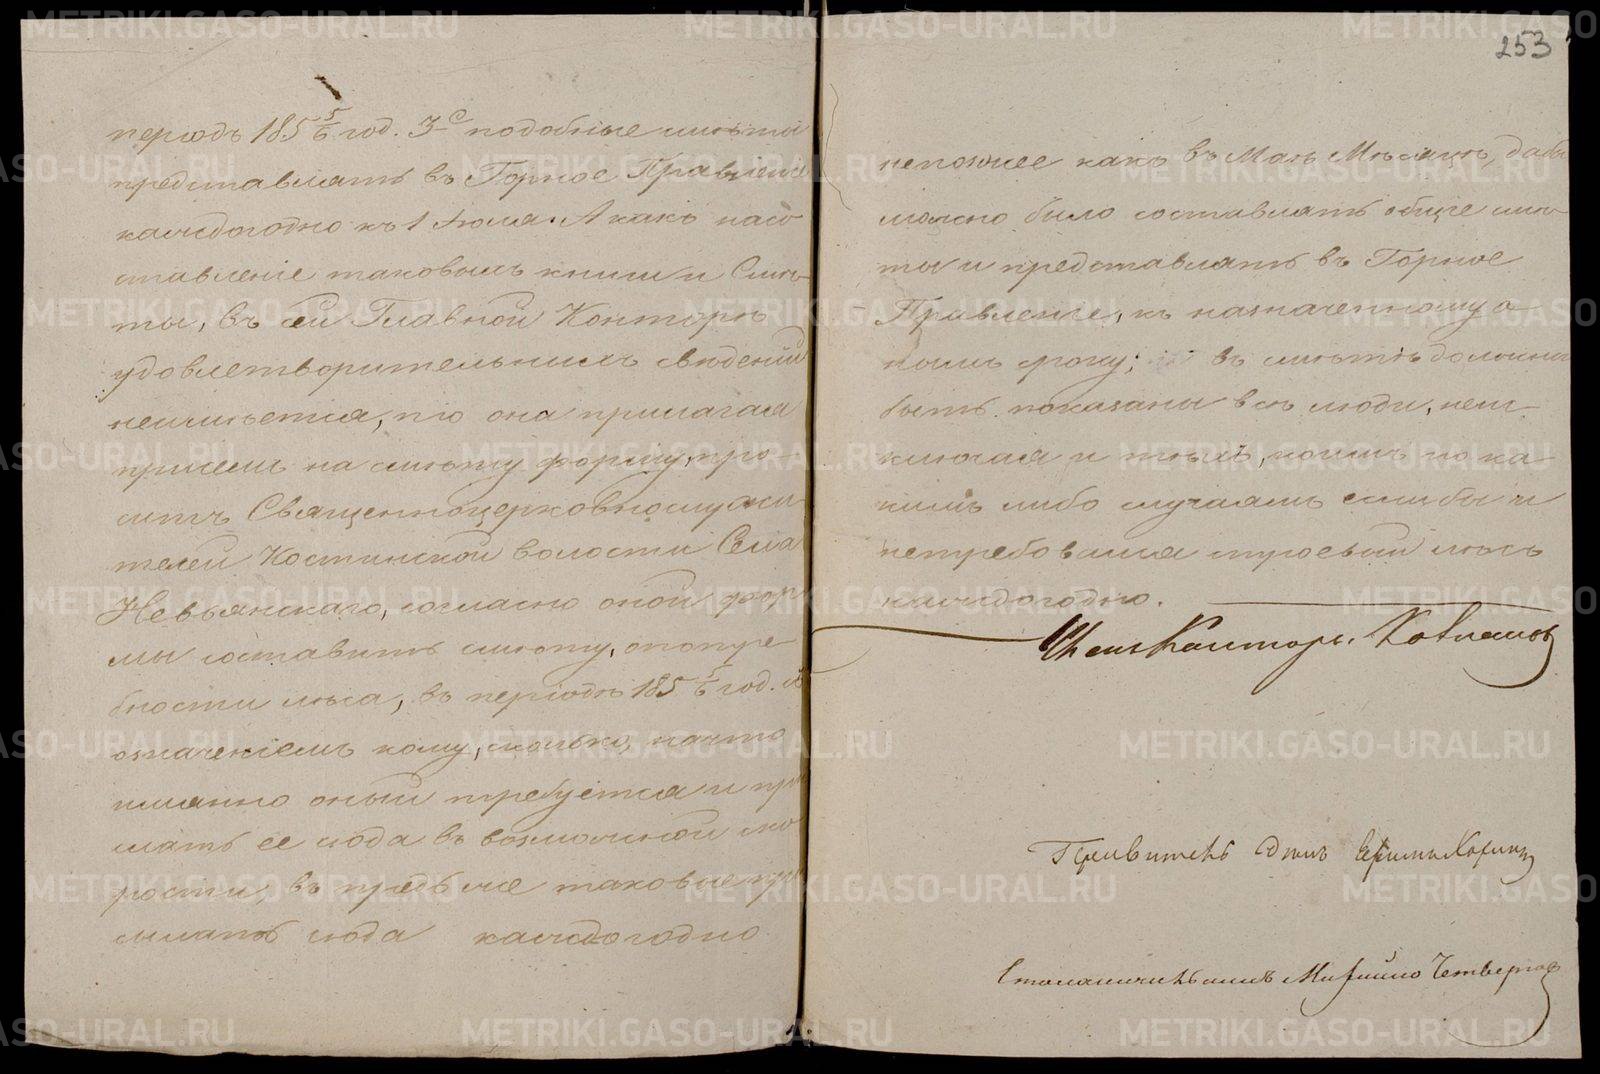 253
періодъ 185 5/6 год. 3е подобные смѣты
представлять въ Горное Правленіе
каждогодно къ 1 Іюля. А какъ на со
ставленіе таковыхъ книги и Смѣ-
ты, въ сей Главной Конторѣ
удовлетворительныхъ свѣденій
неимѣется, то она прилагая
присемъ на смѣту форму, про-
ситъ Священноцерковнослужи
телей Костинской волости Села
Невьянскаго, согласно оной фор
мы составить смѣту, о потре
бности лѣса, въ періодъ 185 5/6 год. съ
означеніемъ кому, сколько, на что
имянно оный требуется и при
слать ее сюда въ возможной ско
рости, въ предь же таковые при
сылать сюда каждогодно
непозже какъ въ Маѣ Мѣсяцѣ, дабы
можно было составлять общіе смѣ-
ты и представлять въ Горное
Правленіе, къ назначенному о
нымъ сроку; въ смѣтѣ должны
быть показаны всѣ люди, неис-
ключая и тѣхъ, коимъ по ка-
кимъ либо случаямъ еслибы и
нетребовался строевый лѣсъ
каждогодно.
Членъ Конторы
Столоначальникъ Михайло Четверговъ
METRIKI.GASO-URAL.RU